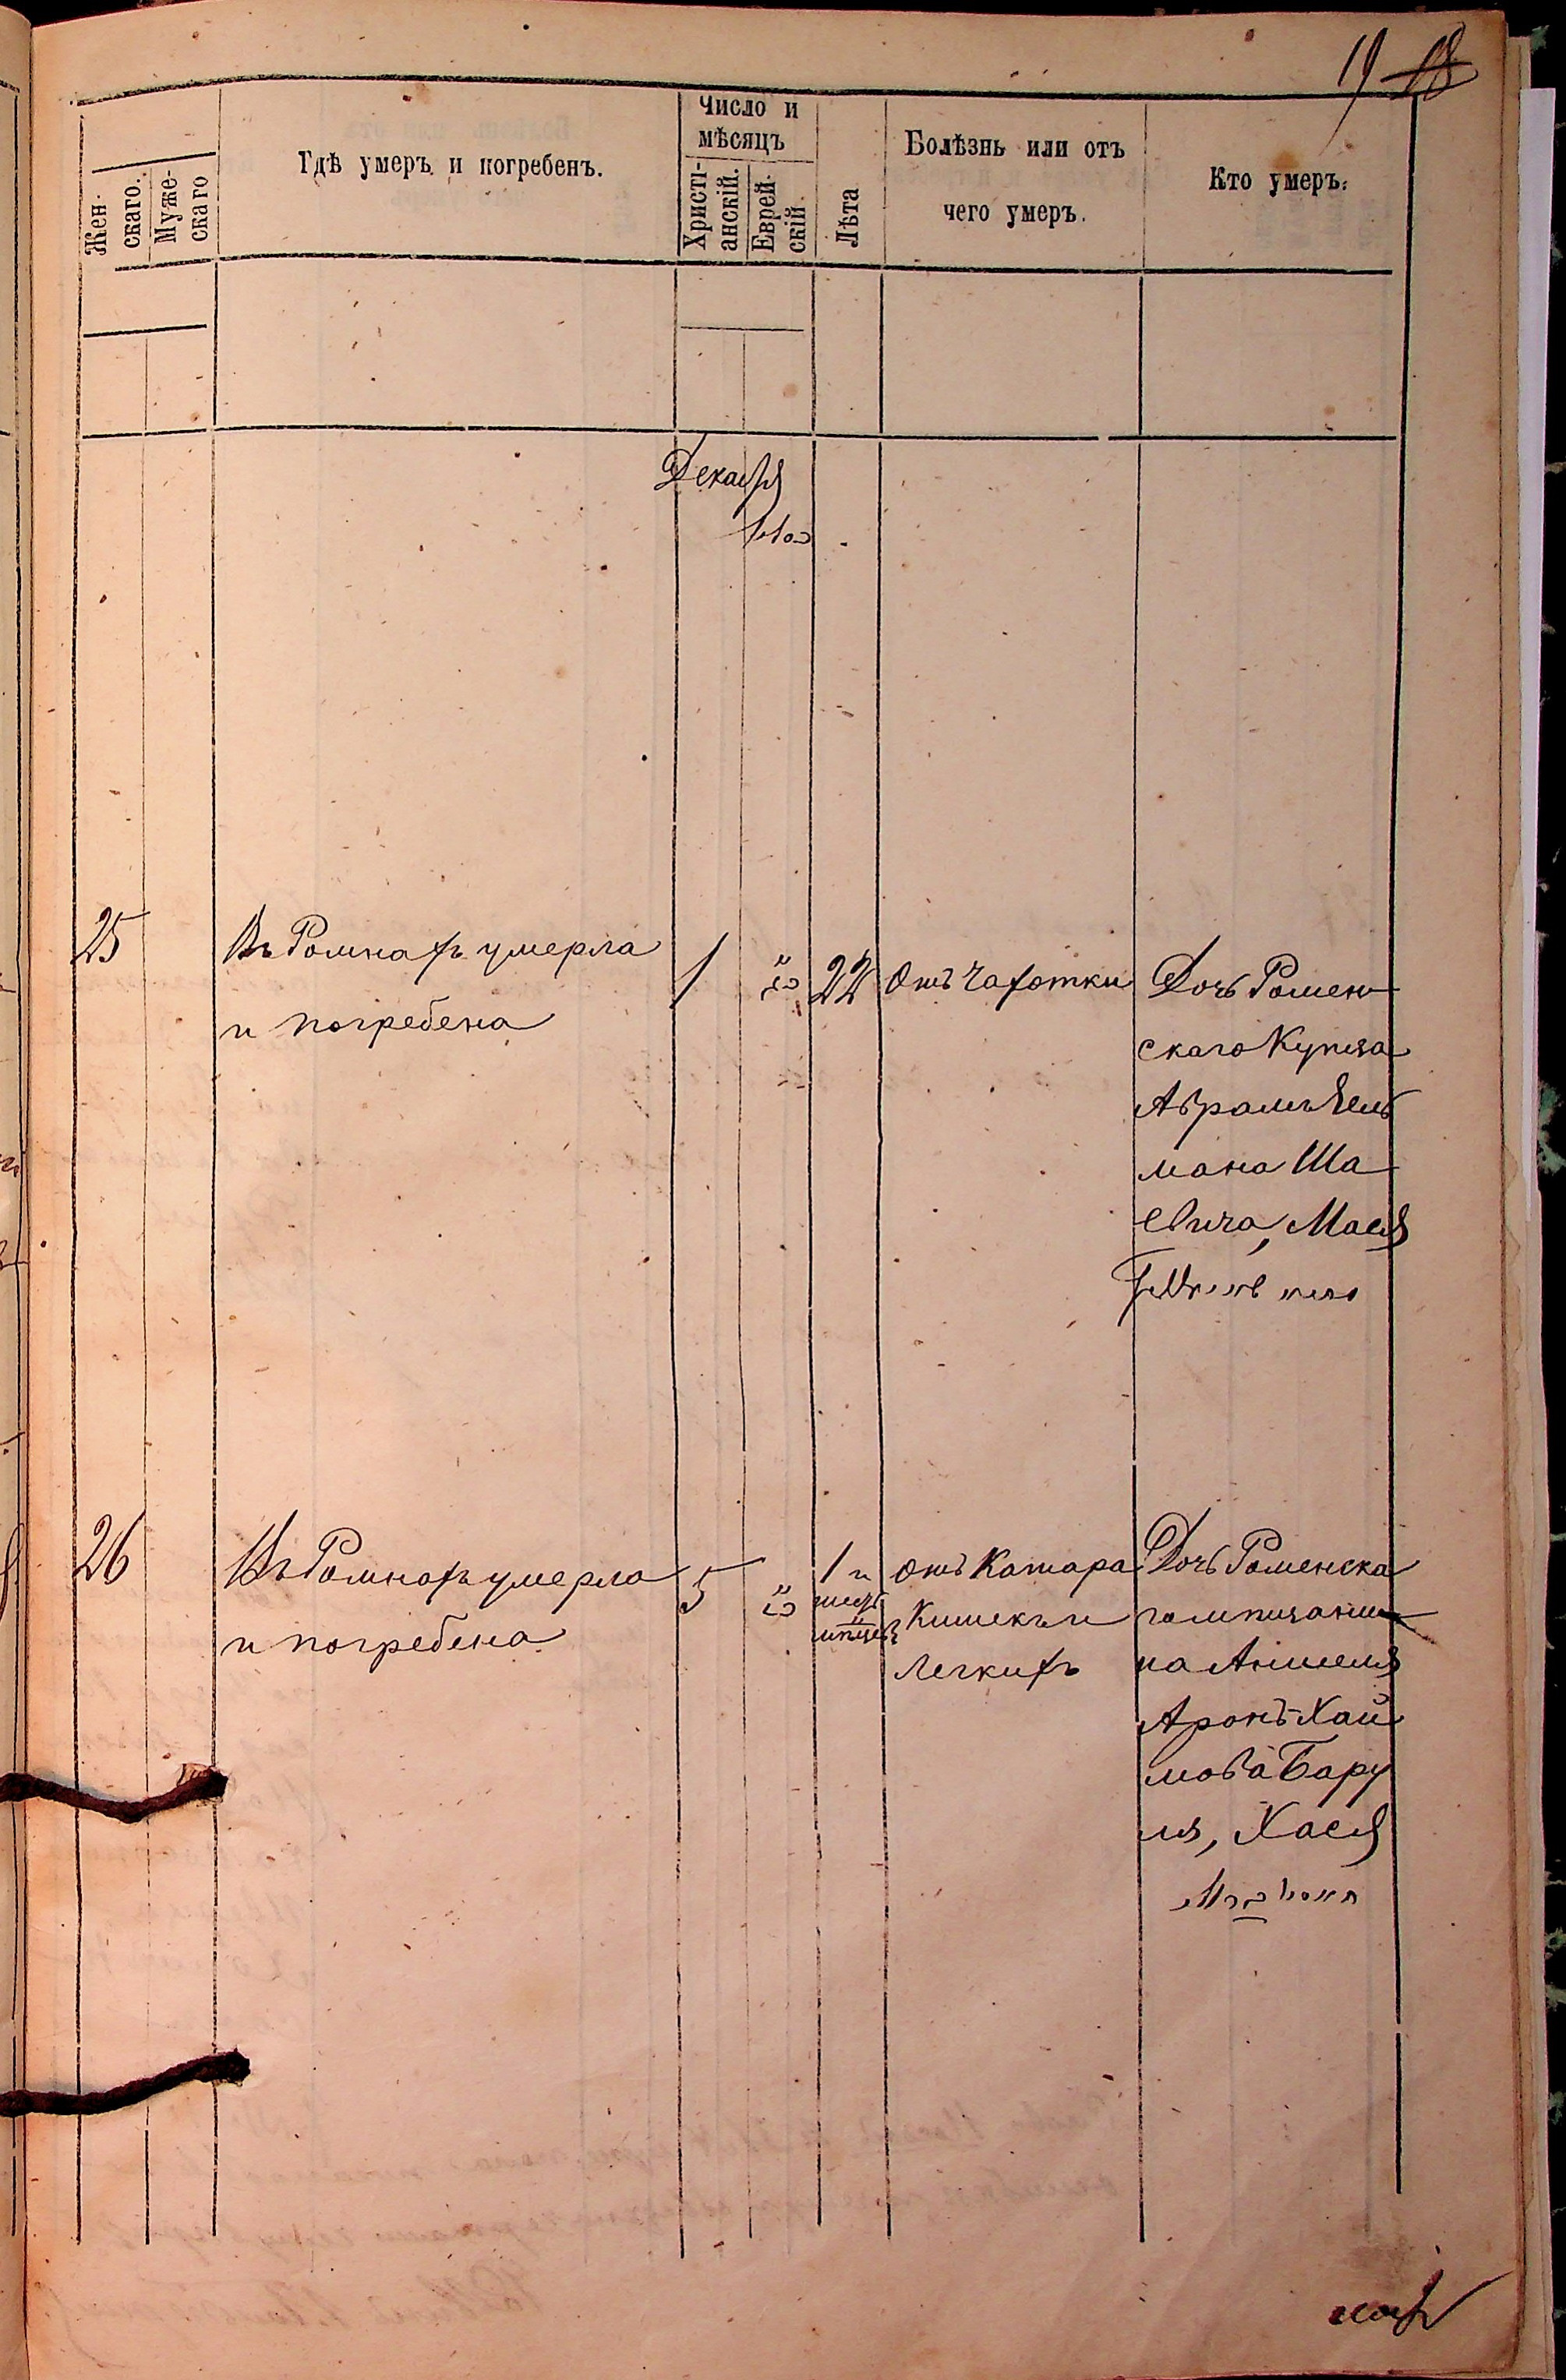 19 18
Жен-
скаго.
Муже-
скаго
Гдѣ умеръ и погребенъ.
Число и
мѣсяцъ
Христі-
анскій.
Еврей-
скій.
Лѣта
Болѣзнь или отъ
чего умеръ.
Кто умеръ.
Декабря
25
Въ Ромнахъ умерла
и погребена
1
22
Отъ Чахотки
Дочь Ромен-
скаго Купца
Абрамъ
мана Ша
евича, Мася
26
Въ Ромнахъ умерла
и погребена
5
1 и
шесть
отъ Катара
Кишекъ и
Легкихъ
Дочь Роменска
го мѣщани
на Аншеля
Аронъ Хай
мова Бару
ля, Хася